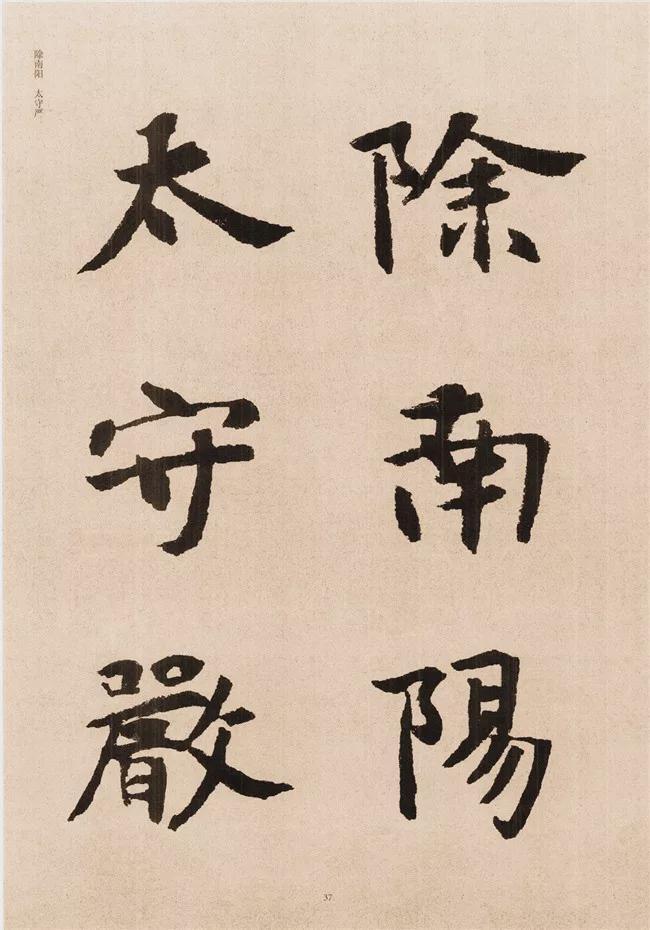 除南陽
太守嚴
除南阳 太守严
37